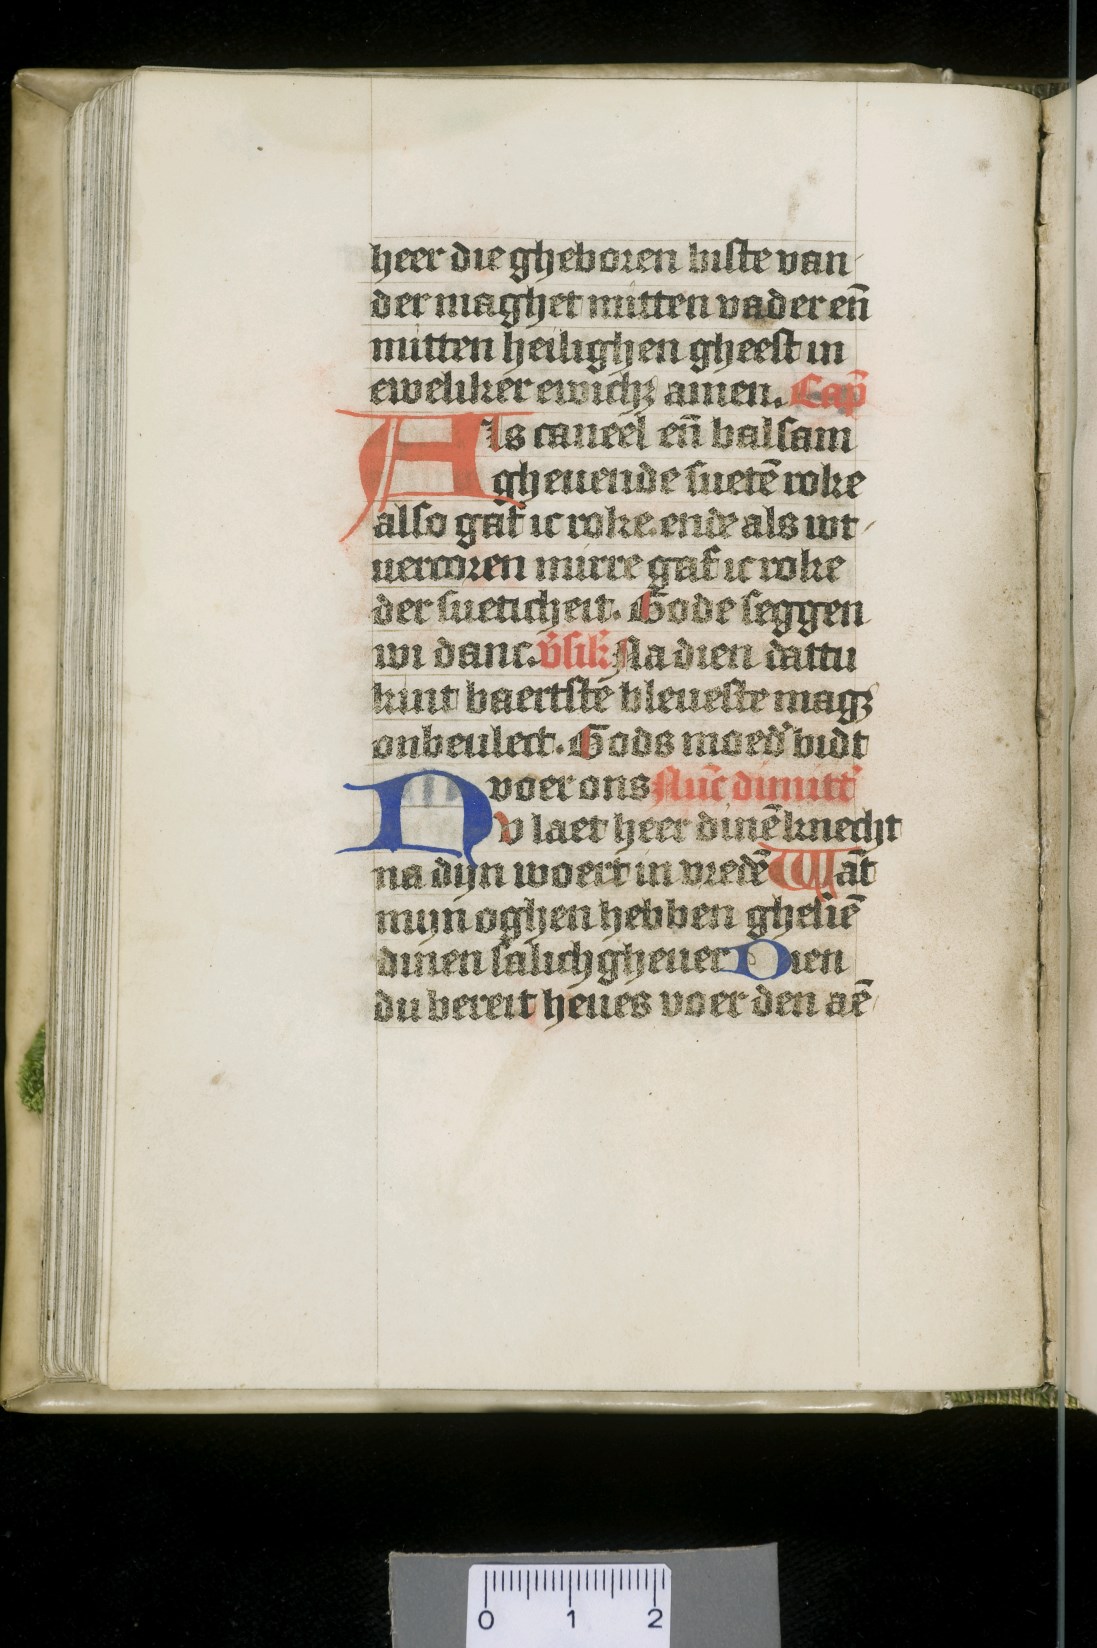 heer die gheboren biste van
der maghet mitten vader en̄
mitten heilighen gheest in
eweliker ewichꝫ amen. Cap̄
Als caneel en̄ balsam
gheuende suetē roke
also gaf ic roke. ende als wt
uercoren mirre gaf ic roke
der sueticheit. Gode seggen
wi danc. v̄sik̄ Na dien dattu
kint baertste bleueste magꝫ
onbeulect. Gods moed̓ bidt
voer ons Nūc dimitt̓
Nv laet heer dinē knecht
na dijn woert in vredē Wāt
mijn oghen hebben ghesiē
dinen salichgheuer Dien
du bereit heues voer den aē
0 1 2